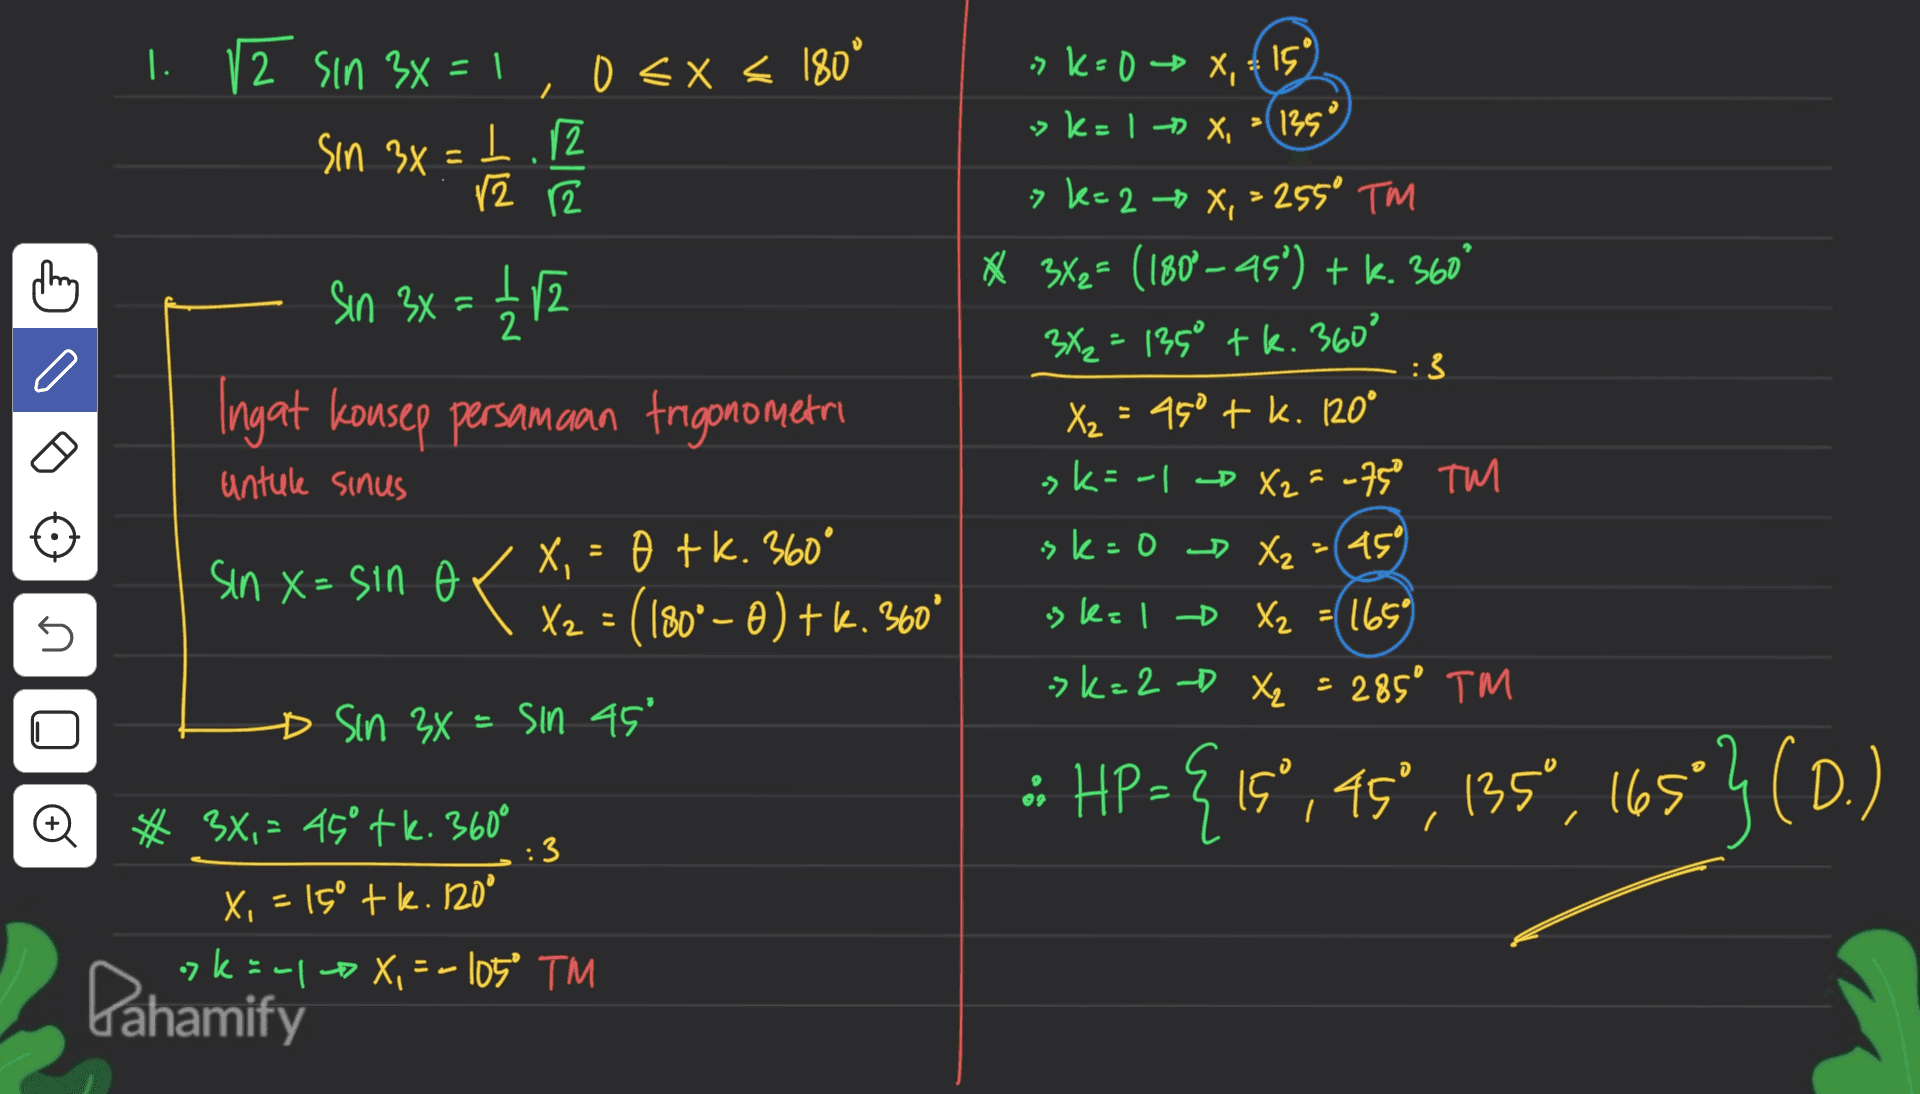 1. √2 sin 3x = 1 , 0 ≤ x ≤ 180°
sin 3x = 1/√2 . √2/√2
sin 3x = 1/2 √2
Ingat konsep persamaan trigonometri
untuk sinus
sin x = sin θ < x₁ = θ + k. 360°
x₂ = (180° - θ) + k. 360°
→ sin 3x = sin 45°
* 3x₁ = 45° + k. 360° :3
x₁ = 15° + k. 120°
→ k = -1 → x₁ = -105° TM
→ k = 0 → x₁ = 15°
→ k = 1 → x₁ = 135°
→ k = 2 → x₁ = 255° TM
* 3x₂ = (180° - 45°) + k. 360°
3x₂ = 135° + k. 360° :3
x₂ = 45° + k. 120°
→ k = -1 → x₂ = -75° TM
→ k = 0 → x₂ = 45°
→ k = 1 → x₂ = 165°
→ k = 2 → x₂ = 285° TM
∴ HP = {15°, 45°, 135°, 165°} (D.)
Pahamify